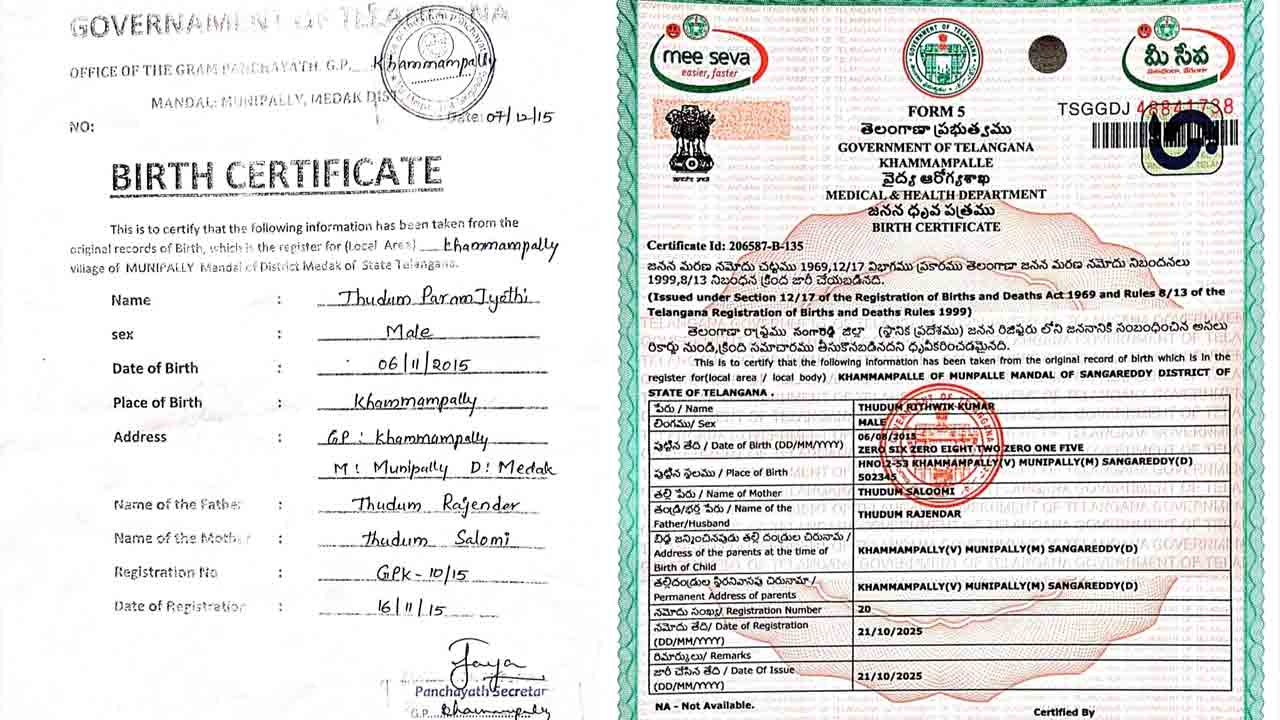 GOVERNAMENT OF TELANGANA
OFFICE OF THE GRAM PANCHAYATH G.P. Khammampally
MANDAL: MUNIPALLY, MEDAK DIS
Date: 07/12/15
NO:
BIRTH CERTIFICATE
This is to certify that the following information has been taken from the
original records of Birth, which is the register for (Local Area) Khammampally
village of MUNIPALLY Mandal of District Medak of State Telangana.
Name : Thudum ParamJyothi
sex : Male
Date of Birth : 06/11/2015
Place of Birth : Khammampally
Address : G.P: Khammampally
M: Munipally D: Medak
Name of the Father : Thudum Rajender
Name of the Mother : Thudum Salomi
Registration No : GPK-10/15
Date of Registration : 16/11/15
Jaya
Panchayath Secretar
G.P. Khammampally
mee seva
easier, faster
మీ సేవ
FORM 5
TSGGDJ 48841738
తెలంగాణ ప్రభుత్వము
GOVERNMENT OF TELANGANA
KHAMMAMPALLE
వైద్య ఆరోగ్యశాఖ
MEDICAL & HEALTH DEPARTMENT
జనన ధృవ పత్రము
BIRTH CERTIFICATE
Certificate Id: 206587-B-135
జనన మరణ నమోదు చట్టము 1969,12/17 విభాగము ప్రకారము తెలంగాణ జనన మరణ నమోదు నిబందనలు
1999,8/13 నిబంధన క్రింద జారీ చేయబడినది.
(Issued under Section 12/17 of the Registration of Births and Deaths Act 1969 and Rules 8/13 of the
Telangana Registration of Births and Deaths Rules 1999)
తెలంగాణ రాష్ట్రము సంగారెడ్డి జిల్లా (స్థానిక ప్రదేశము) జనన రిజిష్టరు లోని జననానికి సంబంధించిన అసలు
రికార్డు నుండి,క్రింది సమాచారము తీసుకొనబడినదని ధృవీకరించడమైనది.
This is to certify that the following information has been taken from the original record of birth which is in the
register for(local area / local body) KHAMMAMPALLE OF MUNPALLE MANDAL OF SANGAREDDY DISTRICT OF
STATE OF TELANGANA .
పేరు / Name THUDUM RITHWIK KUMAR
లింగము/ Sex MALE
పుట్టిన తేది / Date of Birth (DD/MM/YYYY) 06/08/2015
ZERO SIX ZERO EIGHT TWO ZERO ONE FIVE
పుట్టిన స్థలము / Place of Birth HNO.2-53 KHAMMAMPALLY(V) MUNIPALLY(M) SANGAREDDY(D)
502345
తల్లి పేరు / Name of Mother THUDUM SALOOMI
తండ్రి/భర్త పేరు / Name of the
Father/Husband THUDUM RAJENDAR
బిడ్డ జన్మించినపుడు తల్లి దండ్రుల చిరునామ /
Address of the parents at the time of
Birth of Child KHAMMAMPALLY(V) MUNIPALLY(M) SANGAREDDY(D)
తల్లిదండ్రుల స్థిరనివాసపు చిరునామా /
Permanent Address of parents KHAMMAMPALLY(V) MUNIPALLY(M) SANGAREDDY(D)
నమోదు సంఖ్య/ Registration Number 20
నమోదు తేది/ Date of Registration
(DD/MM/YYYY) 21/10/2025
రిమార్కులు/ Remarks
జారీ చేసిన తేది / Date Of Issue
(DD/MM/YYYY) 21/10/2025
NA - Not Available.
Certified By